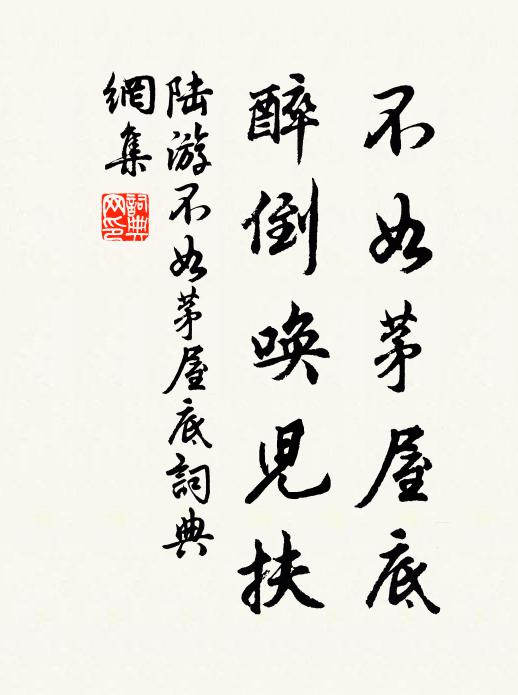 不如茅屋底
醉倒唤児扶
陆游不如茅屋底詞典
網集
詞典
网印